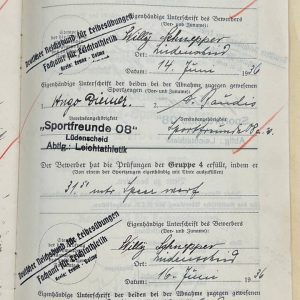 Eigenhändige Unterschrift des Bewerbers
(Vor- und Zuname):
Deutscher Reichsbund für Leibesübungen
Fachamt für Leichtathletik
Willy Schnepper
Ort: Lüdenscheid
Datum: 14. Juni 1936
Eigenhändige Unterschrift der beiden bei der Abnahme zugegen gewesenen
Sportzeugen (Vor- und Zuname):
Hugo Diemer
Vereinszugehörigkeit:
"Sportfreunde 08"
Lüdenscheid
Abtlg.: Leichtathletik
Vereinszugehörigkeit:
Sportfreunde 08
Der Bewerber hat die Prüfungen der Gruppe 4 erfüllt, indem er
(Von einem der Sportzeugen eigenhändig mit Tinte ausgefüllt)
Eigenhändige Unterschrift des Bewerbers
(Vor- und Zuname):
Deutscher Reichsbund für Leibesübungen
Fachamt für Leichtathletik
Willy Schnepper
Ort: Lüdenscheid
Datum: 10. Juni 1936
Eigenhändige Unterschrift der beiden bei der Abnahme zugegen gewesenen